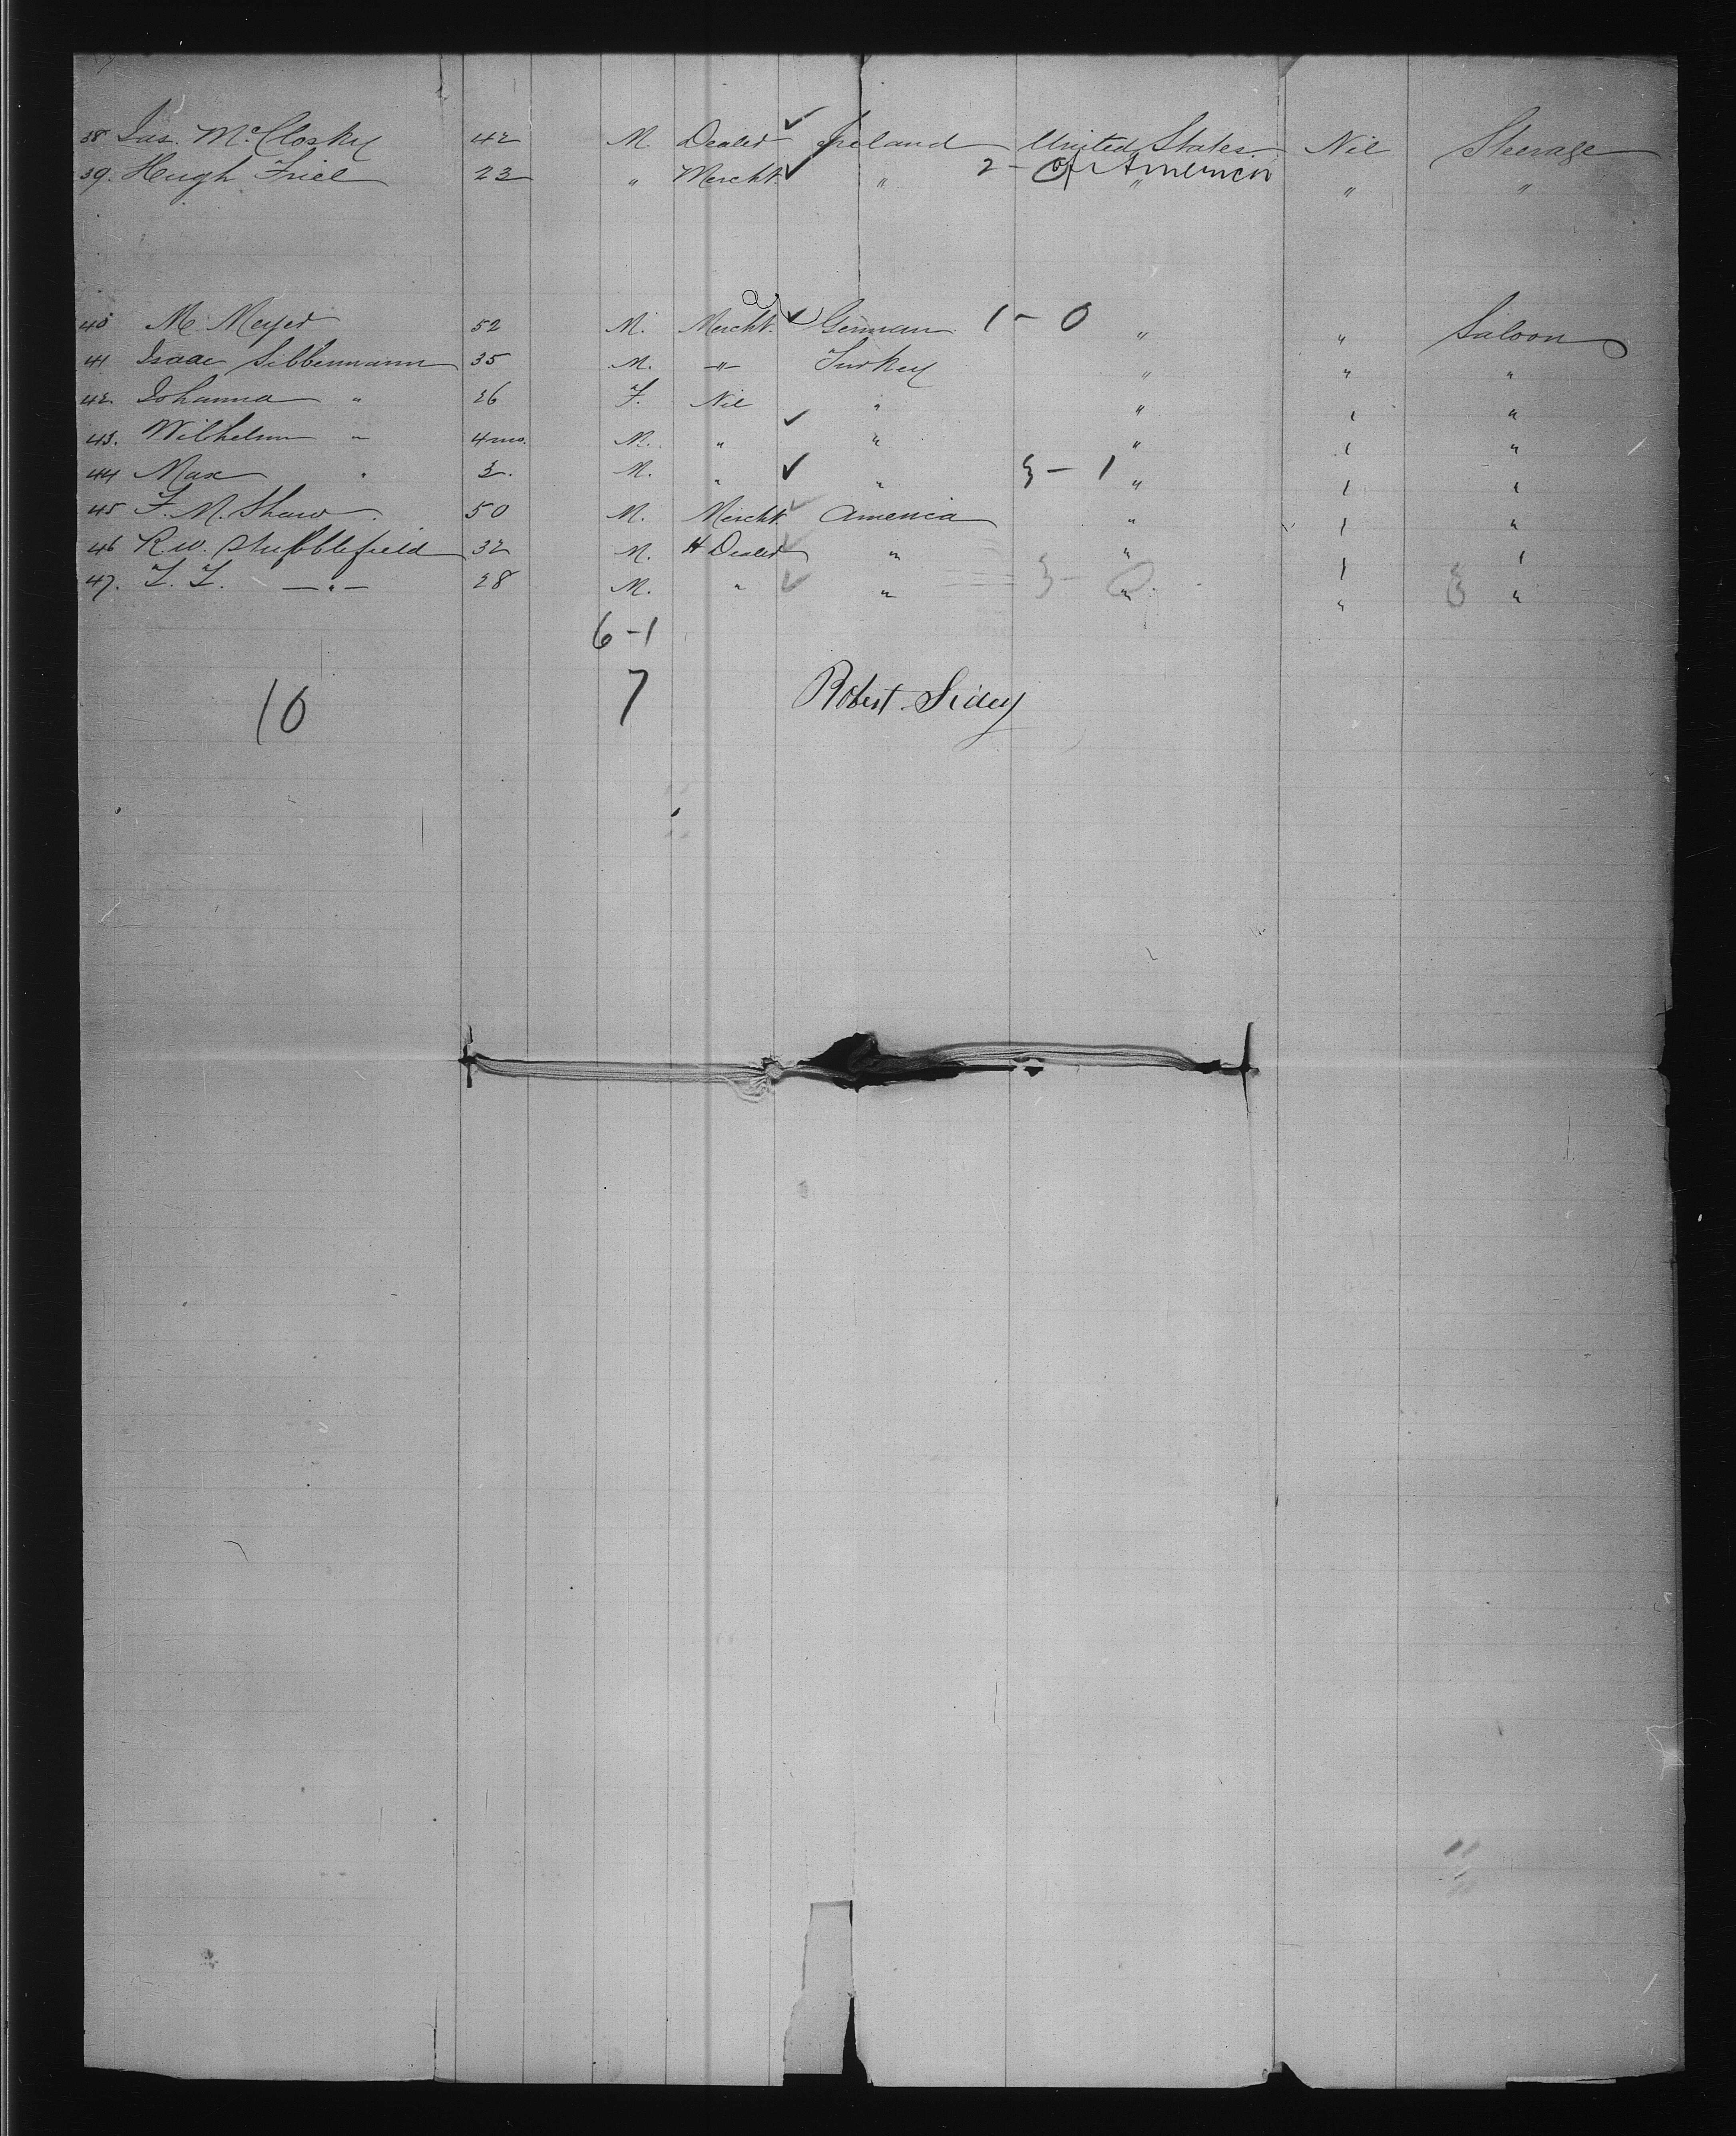 38 Jas. McClosky 42 M. Dealer ✓ Ireland United States Nil Steerage
39. Hugh Friel 23 " Mercht. ✓ " 2 - 0 of America " " "
40 M. Meyer 52 M. Mercht. ✓ German 1 - 0 " " Saloon
41 Isaac Silbermann 35 M. -"- Turkey " " "
42. Johanna " 26 F. Nil " " " "
43. Wilhelm " 4 mo. M. " ✓ " " " "
44 Max " 3. M. " ✓ " 3 - 1 " " "
45 F. M. Shaw 50 M. Mercht. ✓ America " " "
46 R. W. Stubblefield 32 M. H Dealer ✓ " " " "
47. Z. Z. -"- 28 M. " ✓ " 3 - 0 " " "
6 - 1
10 7 Robert Sidey